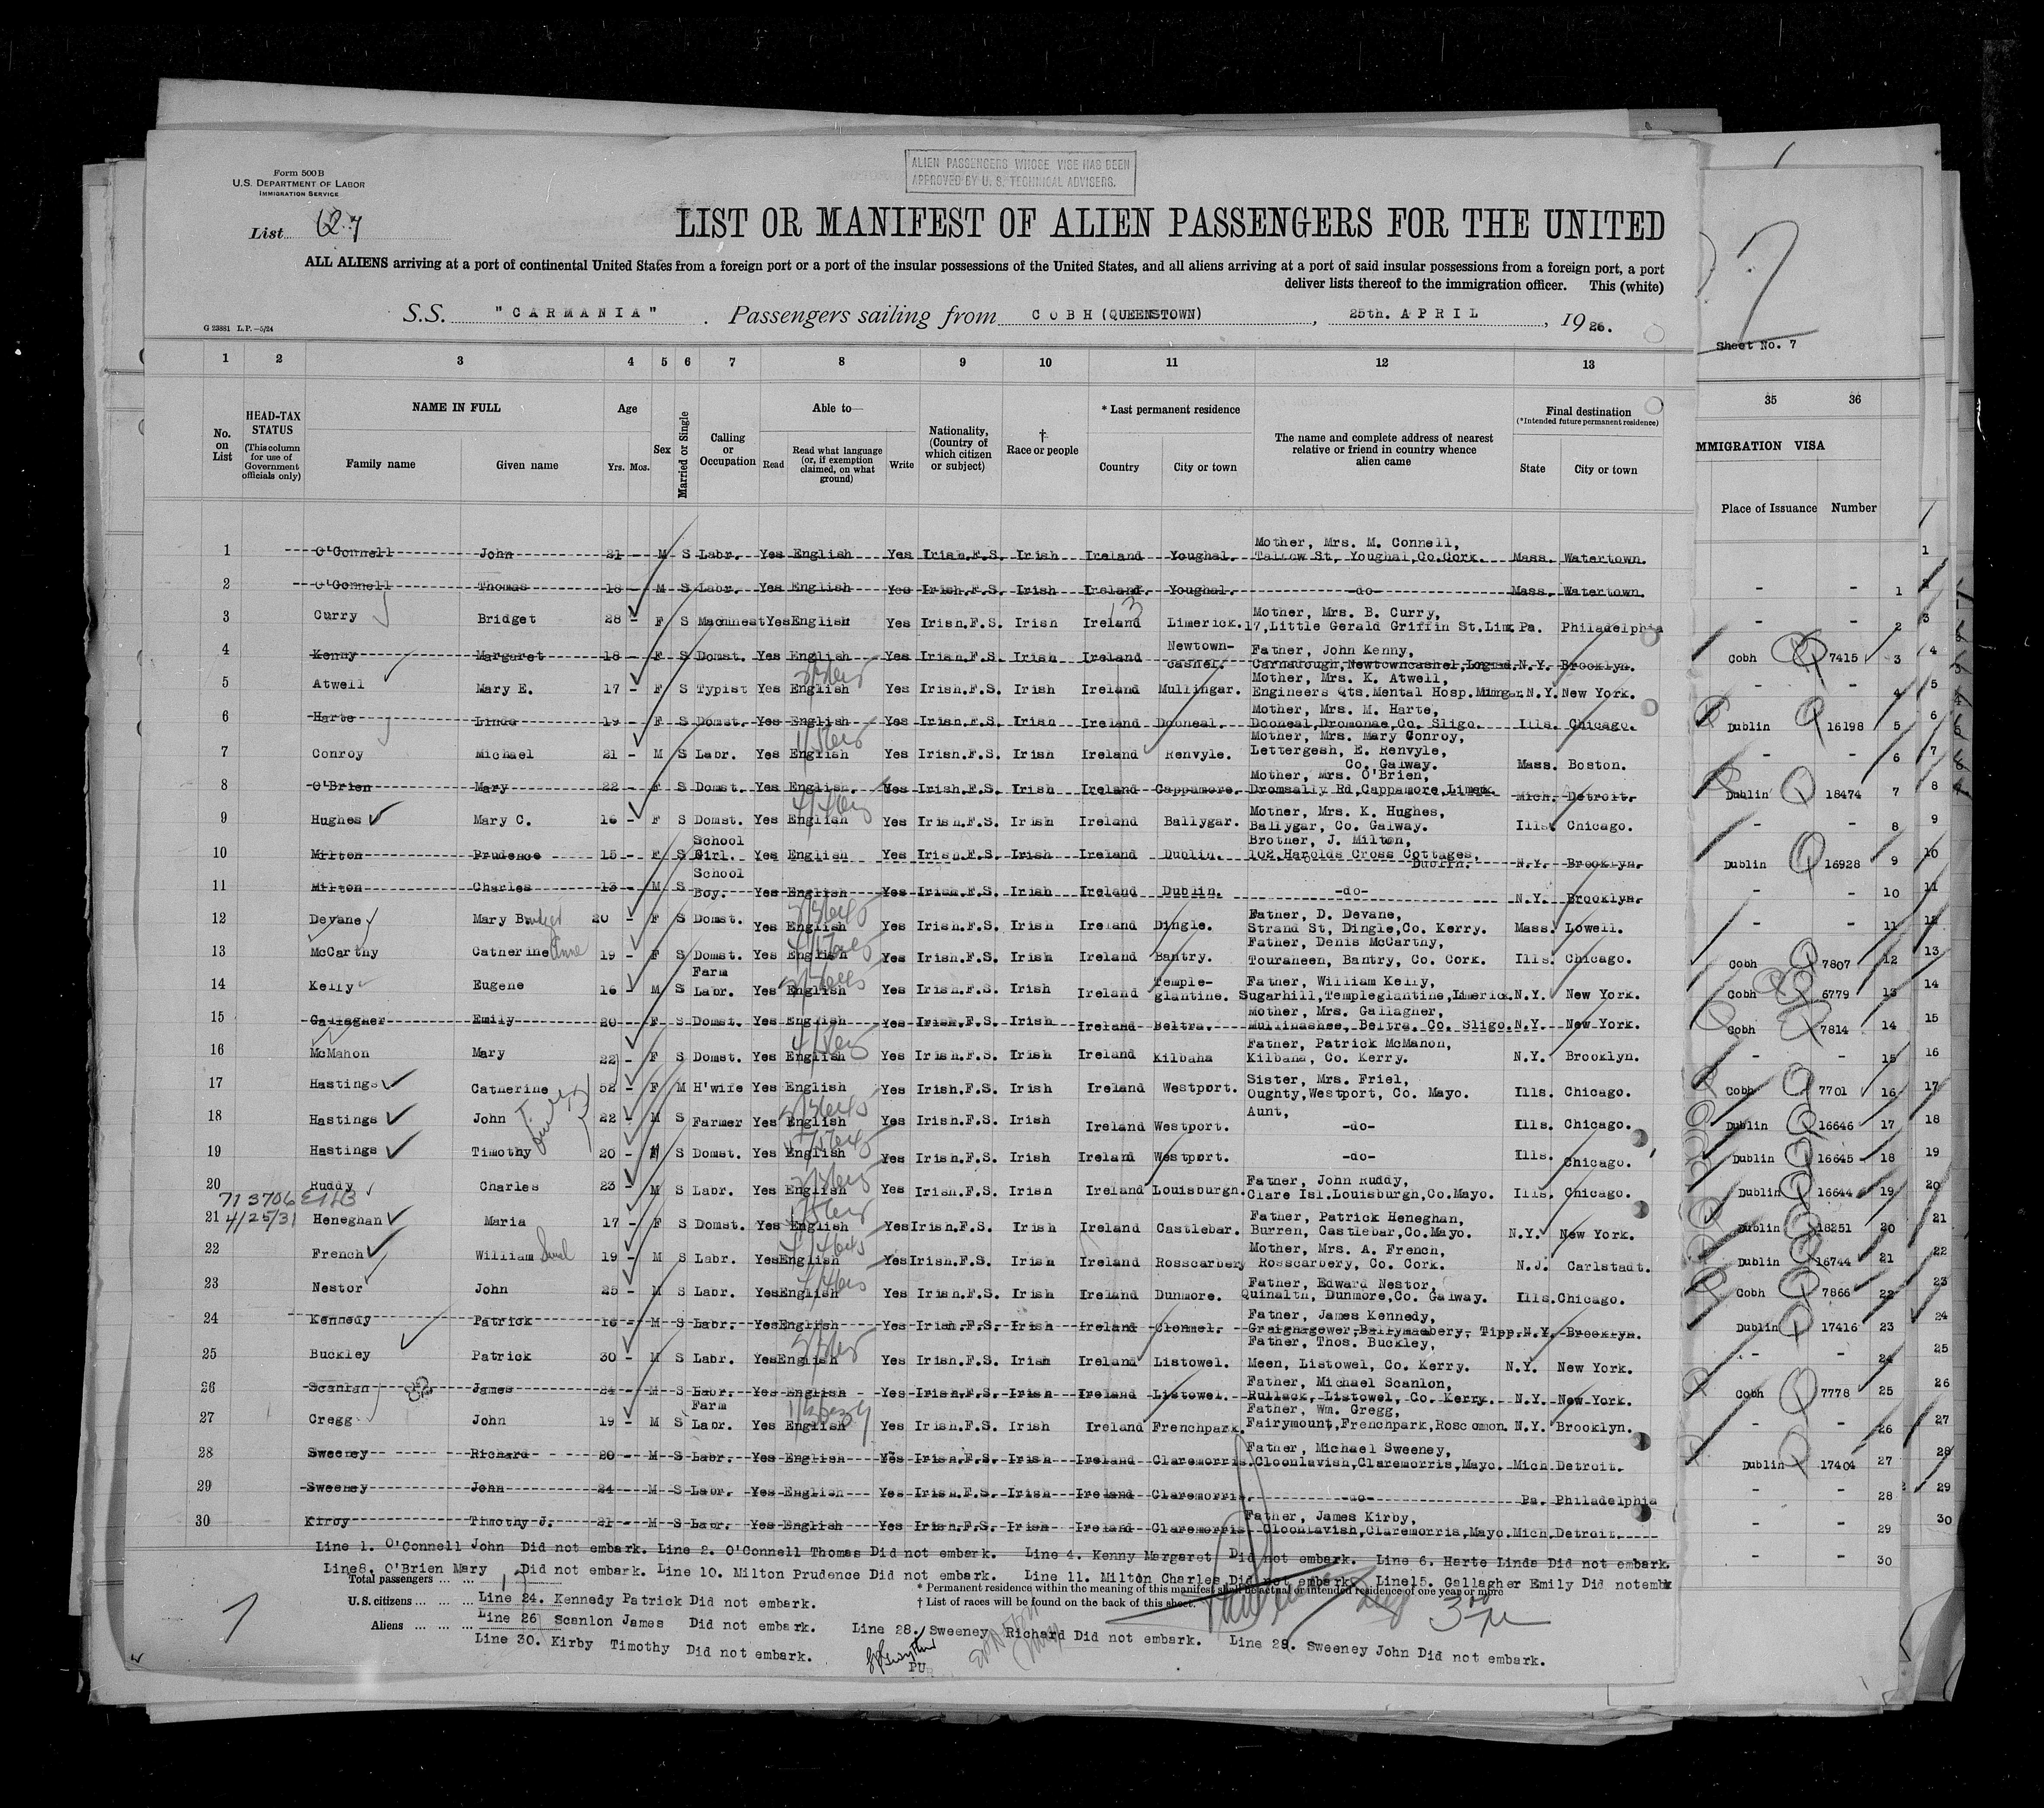 ALIEN PASSENGERS WHOSE VISE HAS BEEN
APPROVED BY U. S. TECHNICAL ADVISERS.
Form 500 B
U.S. DEPARTMENT OF LABOR
IMMIGRATION SERVICE
List
LIST OR MANIFEST OF ALIEN PASSENGERS FOR THE UNITED
ALL ALIENS arriving at a port of continental United States from a foreign port or a port of the insular possessions of the United States, and all aliens arriving at a port of said insular possessions from a foreign port, a port
deliver lists thereof to the immigration officer. This (white)
S.S. "CARMANIA". Passengers sailing from COBH (QUEENSTOWN), 25th. APRIL, 1926.
G 23881 L.P.—5/24
Sheet No. 7
1 2 3 4 5 6 7 8 9 10 11 12 13 35 36
No. on List
HEAD-TAX STATUS (This column for use of Government officials only)
NAME IN FULL
Family name Given name
Age Yrs. Mos.
Sex
Married or Single
Calling or Occupation
Able to—
Read Read what language (or, if exemption claimed, on what ground) Write
Nationality, (Country of which citizen or subject)
† Race or people
* Last permanent residence
Country City or town
The name and complete address of nearest relative or friend in country whence alien came
Final destination
(*Intended future permanent residence)
State City or town
MMIGRATION VISA
Place of Issuance Number
1 O'Connell John 21 - M S Labr. Yes English Yes Irish.F.S. Irish Ireland Youghal. Mother, Mrs. M. Connell,
Tallow St, Youghal,Co.Cork. Mass. Watertown.
2 O'Connell Thomas 18 - M S Labr. Yes English Yes Irish.F.S. Irish Ireland. Youghal. -do- Mass. Watertown.
3 Curry Bridget 28 - F S Machnest Yes English Yes Irish.F.S. Irish Ireland Limerick. Mother, Mrs. B. Curry,
17,Little Gerald Griffin St.Lim. Pa. Philadelphia
4 Kenny Margaret 18 - F S Domst. Yes English Yes Irish.F.S. Irish Ireland Newtown-cashel. Father, John Kenny,
Carnadough,Newtowncashel, N.Y. Brooklyn.
5 Atwell Mary E. 17 - F S Typist Yes English Yes Irish.F.S. Irish Ireland Mullingar. Mother, Mrs. K. Atwell,
Engineers Qts.Mental Hosp. N.Y. New York.
6 Harte Linda 19 - F S Domst. Yes English Yes Irish.F.S. Irish Ireland Dooneal. Mother, Mrs. M. Harte,
Dooneal,Dromonae,Co. Sligo. Ills. Chicago.
7 Conroy Michael 21 - M S Labr. Yes English Yes Irish.F.S. Irish Ireland Renvyle. Mother, Mrs. Mary Conroy,
Lettergesh, E. Renvyle,
Co. Galway. Mass. Boston.
8 O'Brien Mary 22 - F S Domst. Yes English. Yes Irish.F.S. Irish Ireland Cappamore. Mother, Mrs. O'Brien,
Dromsally Rd,Cappamore, Mich. Detroit.
9 Hughes Mary C. 16 - F S Domst. Yes English Yes Irish.F.S. Irish Ireland Ballygar. Mother, Mrs. K. Hughes,
Ballygar, Co. Galway. Ills. Chicago.
10 Milton Prudence 15 - F S School Girl. Yes English Yes Irish.F.S. Irish Ireland Dublin. Brother, J. Milton,
102.Harolds Cross Cottages,
Dublin. N.Y. Brooklyn.
11 Milton Charles 13 - M S School Boy. Yes English Yes Irish.F.S. Irish Ireland Dublin. -do- N.Y. Brooklyn.
12 Devane Mary Bridget 20 - F S Domst. Yes English Yes Irish.F.S. Irish Ireland Dingle. Father, D. Devane,
Strand St, Dingle,Co. Kerry. Mass. Lowell.
13 McCarthy Catherine Anne 19 - F S Domst. Yes English Yes Irish.F.S. Irish Ireland Bantry. Father, Denis McCarthy,
Touraneen, Bantry, Co. Cork. Ills. Chicago.
14 Kelly Eugene 16 - M S Farm Labr. Yes English Yes Irish.F.S. Irish Ireland Temple-glantine. Father, William Kelly,
Sugarhill,Templeglantine,Limerick. N.Y. New York.
15 Gallagher Emily 20 - F S Domst. Yes English Yes Irish.F.S. Irish Ireland Beltra. Mother, Mrs. Gallagher,
Mullinashee, Beltra. Co. Sligo. N.Y. New York.
16 McMahon Mary 22 - F S Domst. Yes English Yes Irish.F.S. Irish Ireland Kilbaha Father, Patrick McMahon,
Kilbaha, Co. Kerry. N.Y. Brooklyn.
17 Hastings Catherine 52 - F M H'wife Yes English Yes Irish.F.S. Irish Ireland Westport. Sister, Mrs. Friel,
Oughty,Westport, Co. Mayo. Ills. Chicago.
18 Hastings John 22 - M S Farmer Yes English Yes Irish.F.S. Irish Ireland Westport. Aunt,
-do- Ills. Chicago.
19 Hastings Timothy 20 - M S Domst. Yes English Yes Irish.F.S. Irish Ireland Westport. -do- Ills. Chicago.
20 Ruddy Charles 23 - M S Labr. Yes English Yes Irish.F.S. Irish Ireland Louisburgh. Father, John Ruddy,
Clare Isl.Louisburgh,Co.Mayo. Ills. Chicago.
4/25/31
21 Heneghan Maria 17 - F S Domst. Yes English Yes Irish.F.S. Irish Ireland Castlebar. Father, Patrick Heneghan,
Burren, Castlebar,Co.Mayo. N.Y. New York.
22 French William 19 - M S Labr. Yes English Yes Irish.F.S. Irish Ireland Rosscarbery Mother, Mrs. A. French,
Rosscarbery, Co. Cork. N.J. Carlstadt.
23 Nestor John 25 - M S Labr. Yes English Yes Irish.F.S. Irish Ireland Dunmore. Father, Edward Nestor,
Quinalth, Dunmore,Co. Galway. Ills. Chicago.
24 Kennedy Patrick 16 - M S Labr. Yes English Yes Irish.F.S. Irish Ireland Clonmel. Father, James Kennedy,
Tipp. N.Y. Brooklyn.
25 Buckley Patrick 30 - M S Labr. Yes English Yes Irish.F.S. Irish Ireland Listowel. Father, Thos. Buckley,
Meen, Listowel, Co. Kerry. N.Y. New York.
26 Scanlan James 24 - M S Labr. Yes English Yes Irish.F.S. Irish Ireland Listowel. Father, Michael Scanlon,
Rullack, Listowel, Co. Kerry. N.Y. New York.
27 Cregg John 19 - M S Farm Labr. Yes English Yes Irish.F.S. Irish Ireland Frenchpark. Father, Wm. Gregg,
Fairymount,Frenchpark,Roscommon. N.Y. Brooklyn.
28 Sweeney Richard 20 - M S Labr. Yes English Yes Irish.F.S. Irish Ireland Claremorris. Father, Michael Sweeney,
Cloonlavish,Claremorris,Mayo. Mich. Detroit.
29 Sweeney John 24 - M S Labr. Yes English Yes Irish.F.S. Irish Ireland Claremorris. -do- Pa. Philadelphia
30 Kirby Timothy J. 21 - M S Labr. Yes English Yes Irish.F.S. Irish Ireland Claremorris Father, James Kirby,
Cloonlavish,Claremorris,Mayo. Mich. Detroit.
Cobh 7415 3
Dublin 16198 5
Dublin 18474 7
Dublin 16928 9
Cobh 7807 12
Cobh 6779 13
Cobh 7814 14
Cobh 7701 16
Dublin 16646 17
Dublin 16645 18
Dublin 16644 19
Dublin 18251 20
Dublin 16744 21
Cobh 7866 22
Dublin 17416 23
Cobh 7778 25
Dublin 17404 27
Line 1. O'Connell John Did not embark. Line 2. O'Connell Thomas Did not embark. Line 4. Kenny Margaret Did not embark. Line 6. Harte Linda Did not embark.
Line8. O'Brien Mary Did not embark. Line 10. Milton Prudence Did not embark. Line 11. Milton Charles Did not embark. Line15. Gallagher Emily Did notembk
Total passengers
* Permanent residence within the meaning of this manifest shall be actual or intended residence of one year or more
U.S. citizens
Line 24. Kennedy Patrick Did not embark.
† List of races will be found on the back of this sheet.
Aliens
Line 26 Scanlon James Did not embark. Line 28. Sweeney Richard Did not embark. Line 29. Sweeney John Did not embark.
Line 30. Kirby Timothy Did not embark.